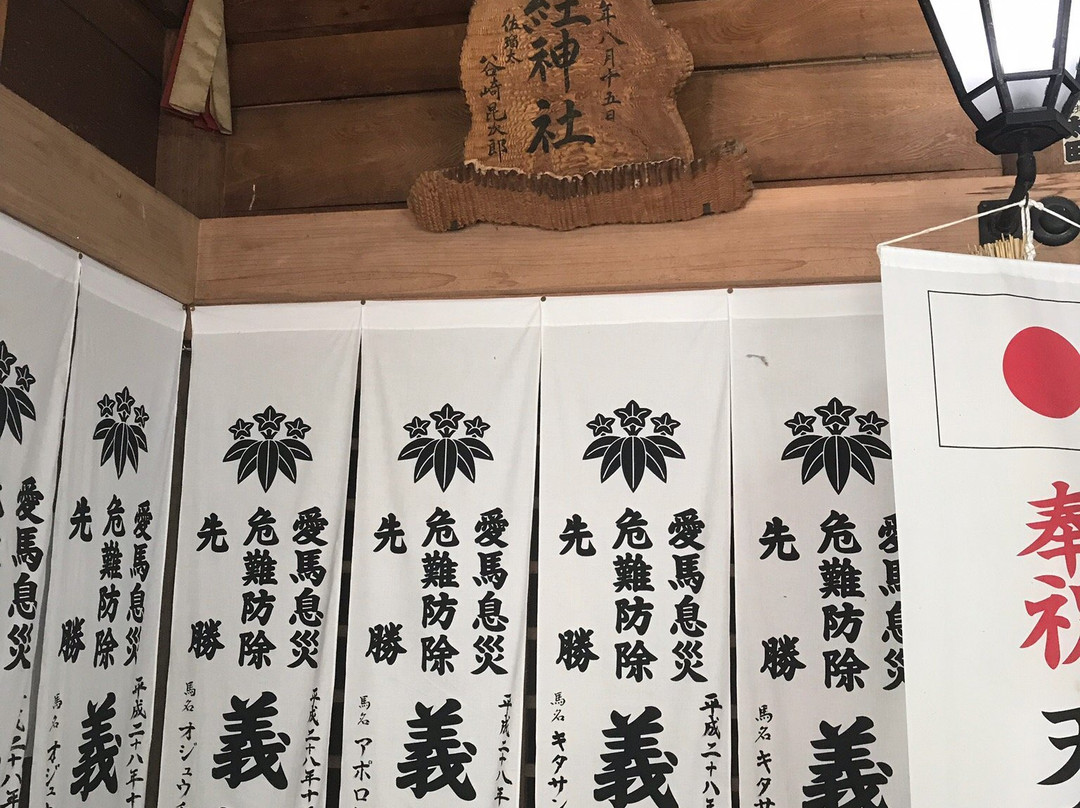 年八月十五日
経神社
佐彌太
谷崎昆次郎
愛馬息災
愛馬息災
危難防除
先勝
平成二十八年十
義
馬名 オジュ
愛馬息災
危難防除
先勝
平成二十八年十
義
馬名 オジュウ
愛馬息災
危難防除
先勝
平成二十八年
義
馬名 アポロ
愛馬息災
危難防除
先勝
平成二十八
義
馬名 キタサン
愛馬息災
危難防除
先勝
義
馬名 キタサ
奉祝
天